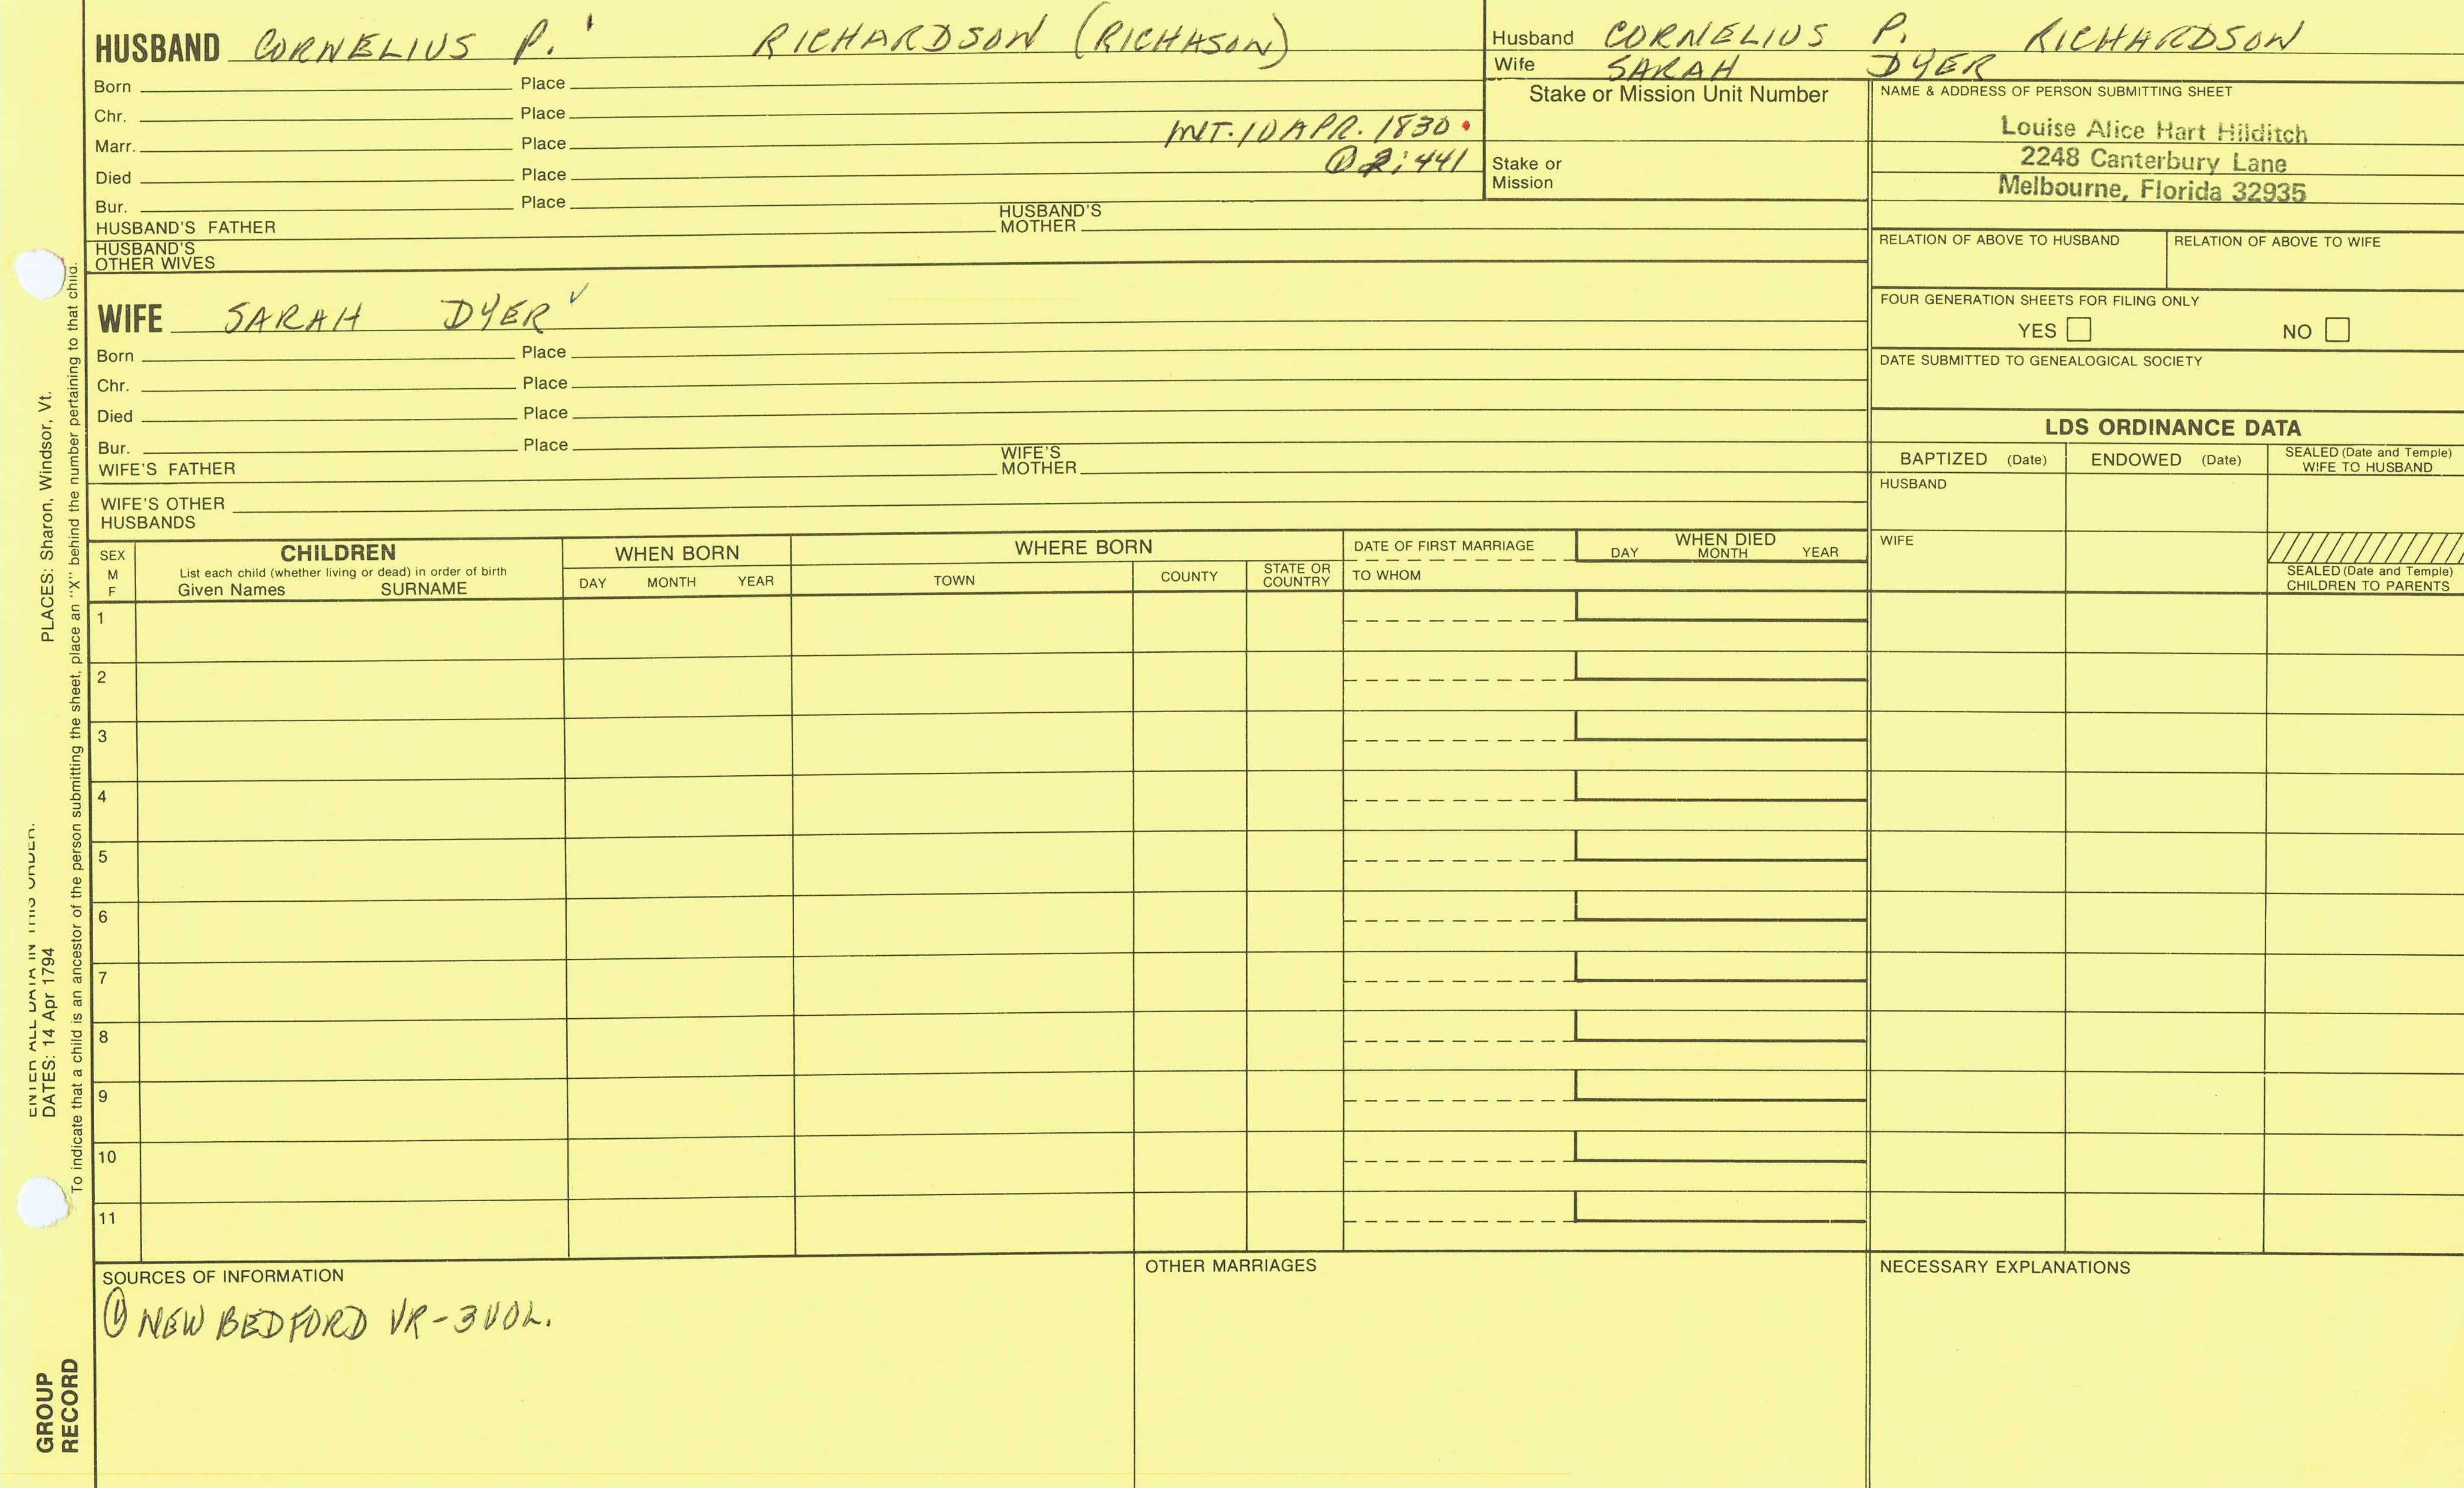 HUSBAND CORNELIUS P. RICHARDSON (RICHASON)
Born Place
Chr. Place
Marr. Place
INT. 10 APR. 1830
① 2:441
Died Place
Bur. Place
HUSBAND'S FATHER HUSBAND'S MOTHER
HUSBAND'S OTHER WIVES
Husband CORNELIUS P. RICHARDSON
Wife SARAH DYER
Stake or Mission Unit Number
Stake or
Mission
NAME & ADDRESS OF PERSON SUBMITTING SHEET
Louise Alice Hart Hilditch
2248 Canterbury Lane
Melbourne, Florida 32935
RELATION OF ABOVE TO HUSBAND RELATION OF ABOVE TO WIFE
FOUR GENERATION SHEETS FOR FILING ONLY
YES NO
DATE SUBMITTED TO GENEALOGICAL SOCIETY
WIFE SARAH DYER ✓
Born Place
Chr. Place
Died Place
Bur. Place
WIFE'S FATHER WIFE'S MOTHER
WIFE'S OTHER
HUSBANDS
LDS ORDINANCE DATA
BAPTIZED (Date) ENDOWED (Date) SEALED (Date and Temple) WIFE TO HUSBAND
HUSBAND
WIFE
SEALED (Date and Temple)
CHILDREN TO PARENTS
SEX
M
F
CHILDREN
List each child (whether living or dead) in order of birth
Given Names SURNAME
WHEN BORN
DAY MONTH YEAR
WHERE BORN
TOWN COUNTY STATE OR COUNTRY
DATE OF FIRST MARRIAGE
TO WHOM
WHEN DIED
DAY MONTH YEAR
1
2
3
4
5
6
7
8
9
10
11
SOURCES OF INFORMATION
① NEW BEDFORD VR-3VOL.
OTHER MARRIAGES
NECESSARY EXPLANATIONS
ENTER ALL DATA IN THIS ORDER.
DATES: 14 Apr 1794 PLACES: Sharon, Windsor, Vt.
To indicate that a child is an ancestor of the person submitting the sheet, place an "X" behind the number pertaining to that child.
GROUP
RECORD